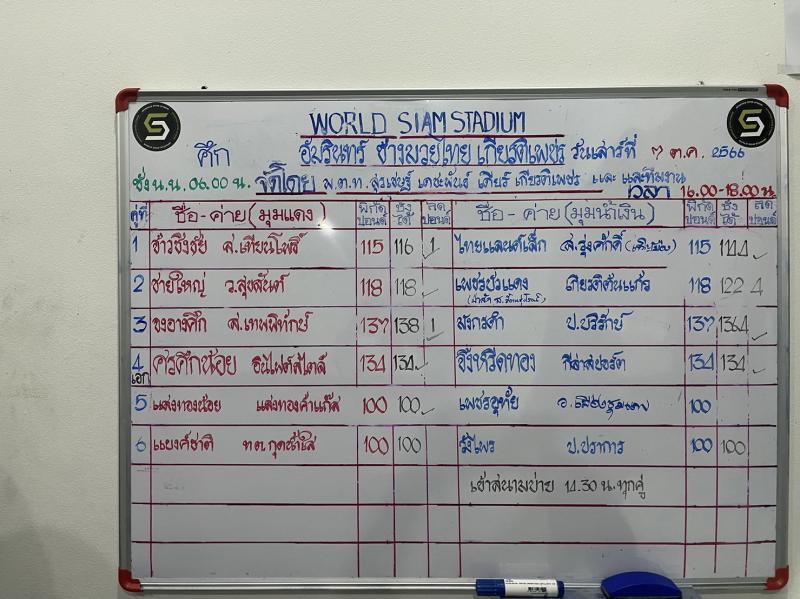 WORLD SIAM STADIUM
ศึก อัมรินทร์ ช้างมวยไทย เกียรติเพชร วันเสาร์ที่ ๗ ต.ค. 2566
ชั่ง น.น. 06.00 น. จัดโดย พ.ต.ท. สุรเชษฐ์ เดชะพันธ์ เดียร์ เกียรติเพชร และ และทีมงาน
เวลา 16.00-18.00 น.
คู่ที่ ชื่อ-ค่าย (มุมแดง) พิกัด ปอนด์ ชั่งได้ ลด ปอนด์ ชื่อ-ค่าย (มุมน้ำเงิน) พิกัด ปอนด์ ชั่งได้ ลด ปอนด์
1 ส.เทียนโพธิ์ 115 116 1 ไทยแลนด์เล็ก ส.รุ่งศักดิ์ 115 114.4
2 ชายใหญ่ ว.สุขสันต์ 118 118 เพชรบัวแดง เกียรติต้นแก้ว 118 122 4
3 จงอางศึก ส.เทพพิทักษ์ 137 138 1 มังกรดำ ป.บริรักษ์ 137 136.4
4 เอก ศรศึกน้อย อินไฟต์สไตล์ 134 134 จังหรีดทอง กีล่าสปอร์ต 134 134
5 แสงทองน้อย แสงทองค้าแก๊ส 100 100 เพชรอุทัย 100
6 แบงค์ชาติ ทต.กุดน้ำใส 100 100 ป.ปราการ 100 100
เข้าสนามบ่าย 14.30 น. ทุกคู่